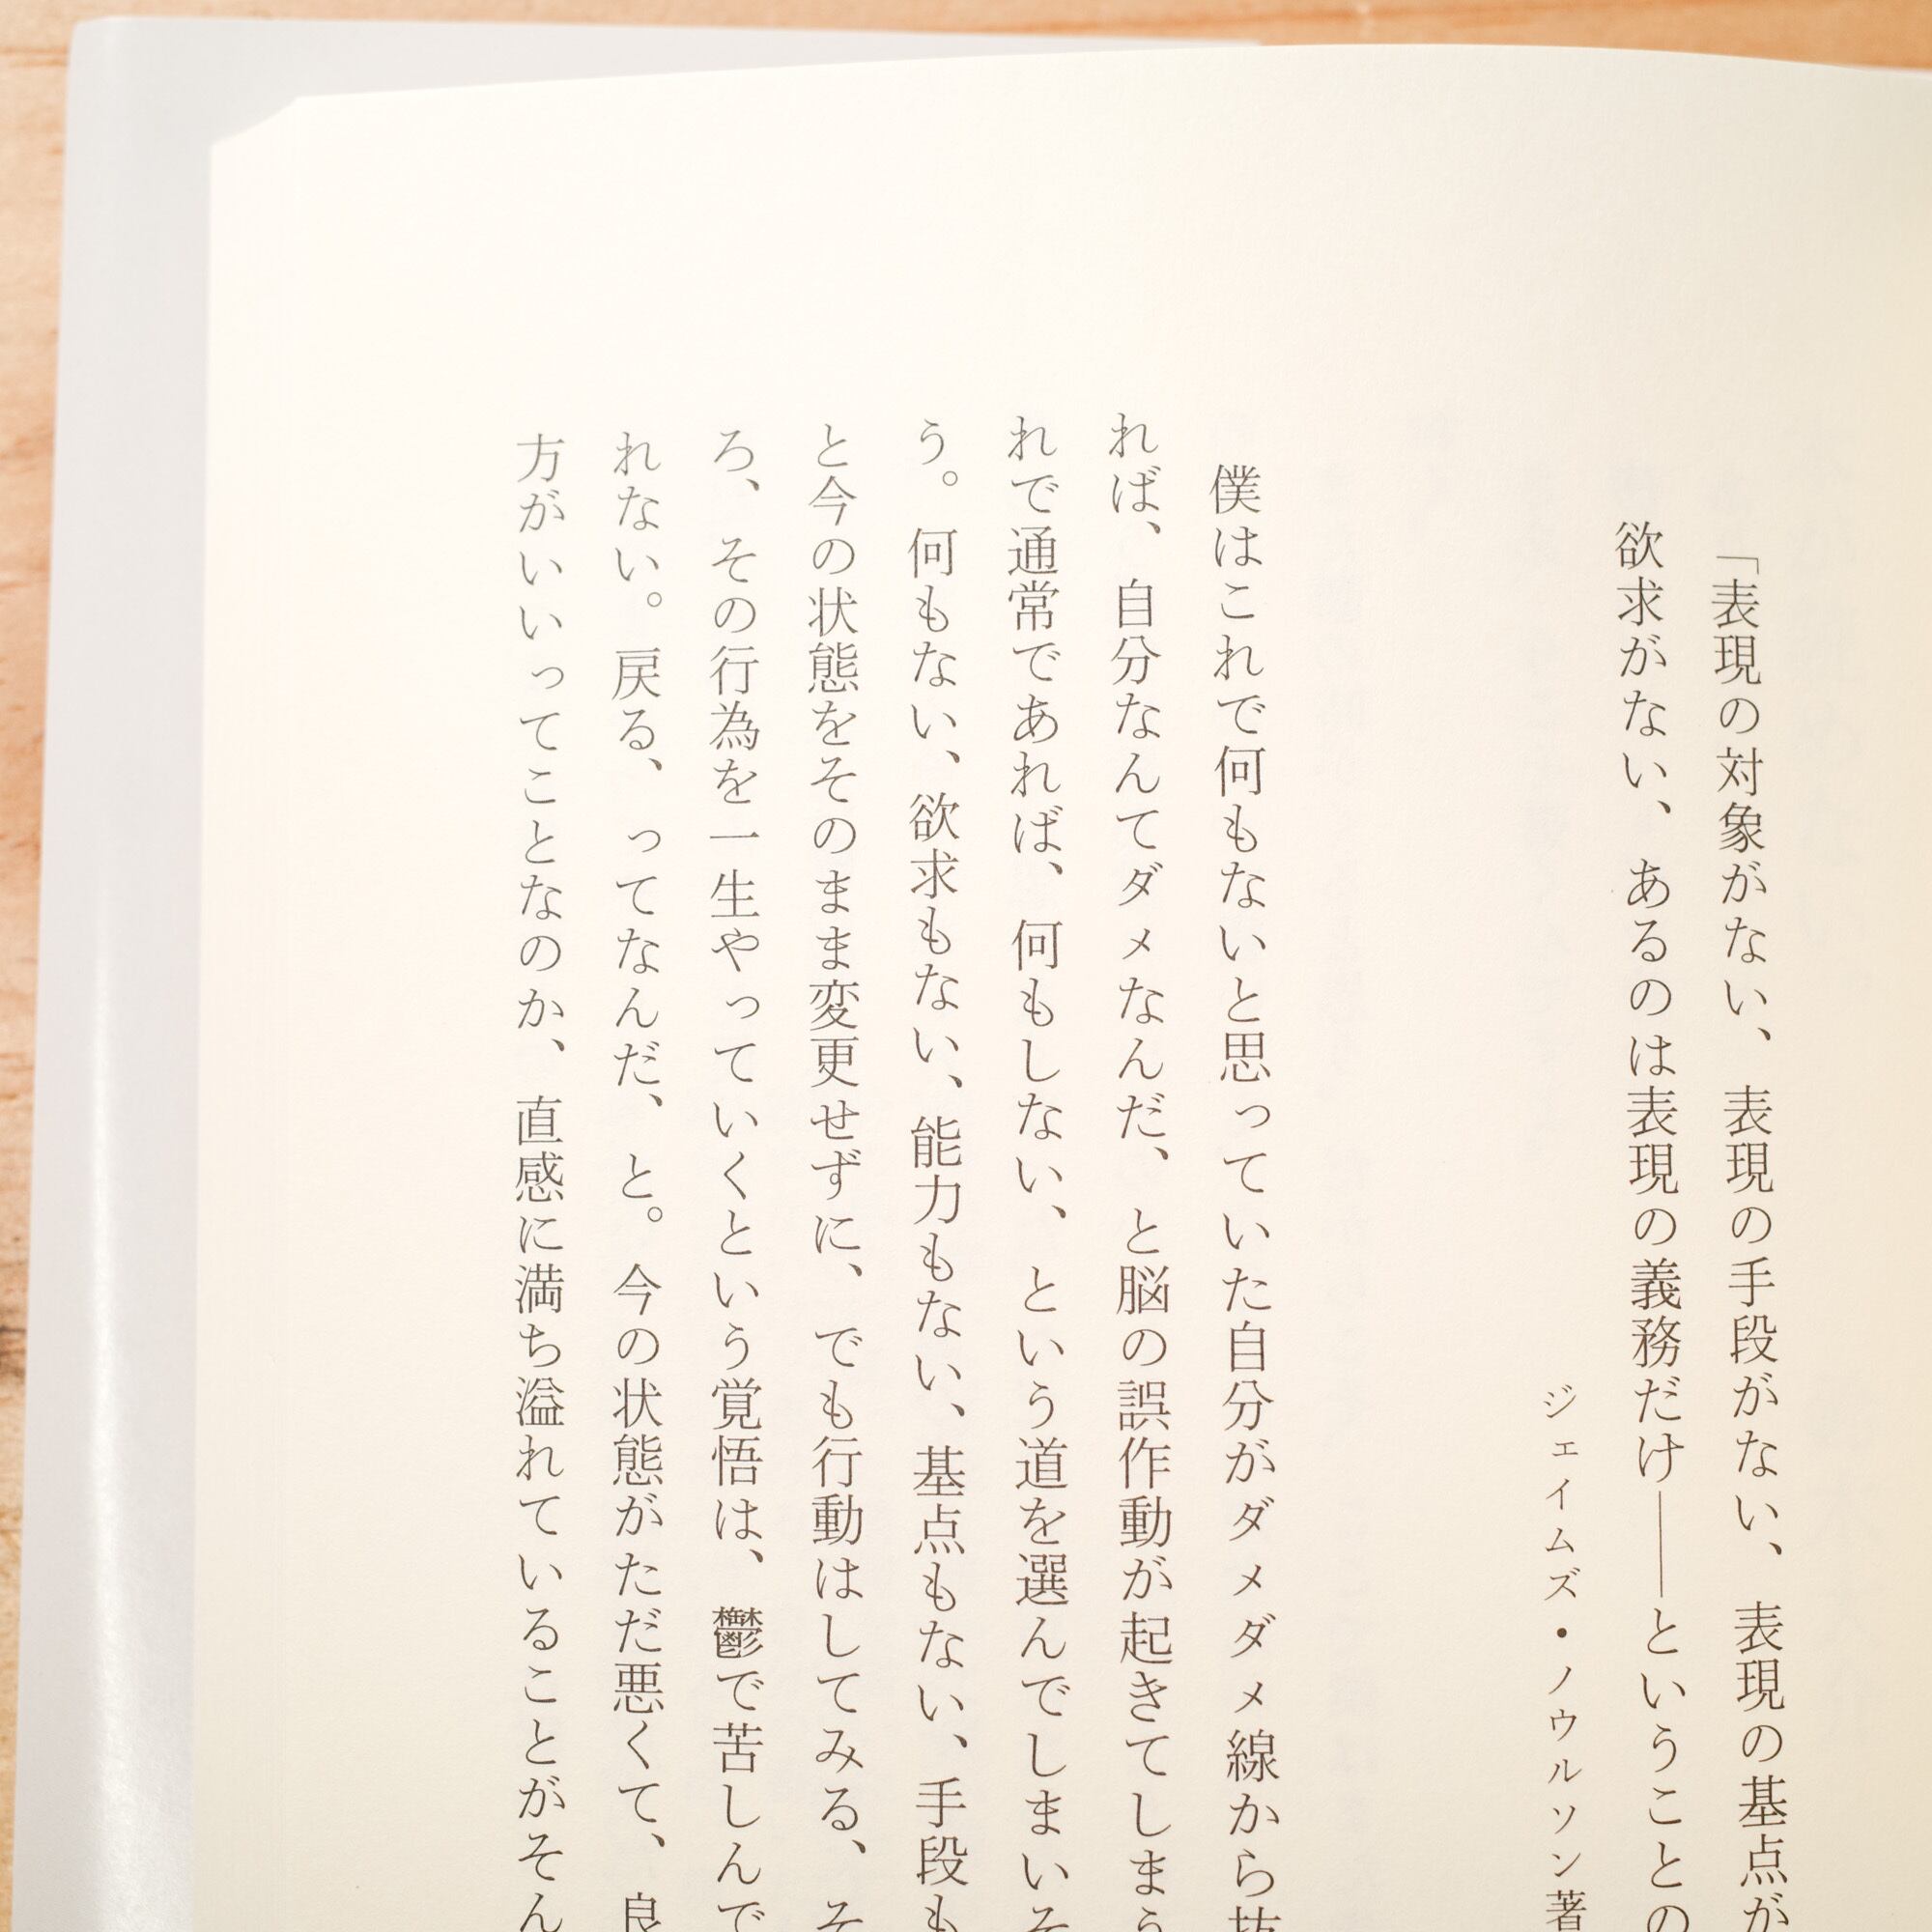 「表現の対象がない、表現の手段がない、表現の基点が
欲求がない、あるのは表現の義務だけ――ということの
ジェイムズ・ノウルソン著
僕はこれで何もないと思っていた自分がダメダメ線から抜
れば、自分なんてダメなんだ、と脳の誤作動が起きてしまう
れで通常であれば、何もしない、という道を選んでしまいそ
う。何もない、欲求もない、能力もない、基点もない、手段も
と今の状態をそのまま変更せずに、でも行動はしてみる、そ
ろ、その行為を一生やっていくという覚悟は、鬱で苦しんで
れない。戻る、ってなんだ、と。今の状態がただ悪くて、良
方がいいってことなのか、直感に満ち溢れていることがそん